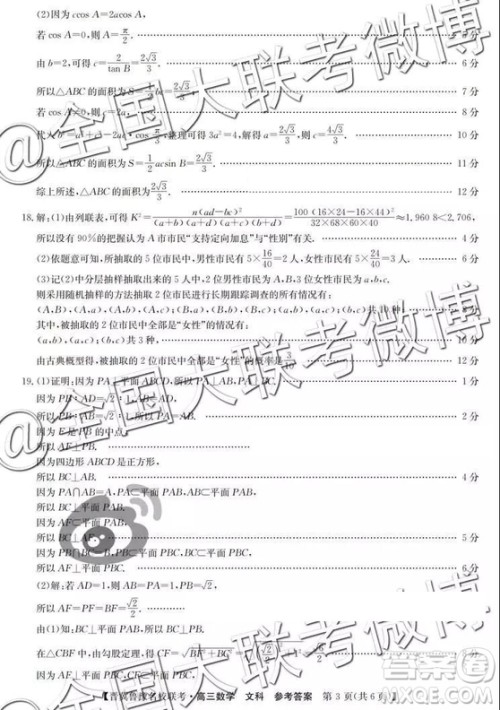 (2)因为ccos A=2acos A,
若cos A=0,则A=π/2. 5 分
由b=2,可得c=2/tan B=2√3/3. 6 分
所以△ABC的面积为S= bc=2√3/3. 7 分
若cos A≠0,则c=2a, 8 分
代入b²=a²+c²-2ac·cos B,整理可得3a²=4,解得a=2√3/3, 10 分
所以△ABC的面积为S=1/2acsin B=2√3/3. 11 分
综上所述,△ABC的面积为2√3/3. 12 分
18.解:(1)由列联表,可得K²=n(ad-bc)²/(a+b)(a+d)(a+c)(b+d)=100(16×24-16×44)²/32×68×60×40≈1.960 8<2.706,
所以没有90%的把握认为A市市民“支持定向加息”与“性别”有关. 4 分
(2)依题意可知,所抽取的5位市民中,男性市民有5×16/40=2人,女性市民有5×24/40=3人. 6 分
(3)记(2)中分层抽样抽取出来的5人中,2位男性市民为A,B,3位女性市民为a,b,c,
则采用随机抽样的方法抽取2位市民进行长期跟踪调查的所有情况有:
(A,B),(A,a), 共10种,
其中,被抽取的2位市民中全部是“女性”的情况有:
(a,b),(a,c),(b,c)共3种, 10 分
由古典概型得,被抽取的2位市民中全部是“女性”的概率是3/10. 12 分
19.(1)证明:因为PA⊥平面ABCD,所以PA⊥AB, 1 分
因为PB:AD=√2:1,所以PB:AB=√2:1, 2 分
因为F是PB的中点,
所以AF⊥PB.
因为四边形ABCD是正方形,
所以BC⊥AB. 4 分
因为PA∩AB=A,PA⊂平面PAB,AB⊂平面PAB,
所以BC⊥平面PAB.
因为AF⊂平面PAB,
所以AF⊥BC. 5 分
因为PB∩BC=B,PB⊂平面PBC,BC⊂平面PBC,
所以AF⊥平面PBC. 6 分
(2)解:若AD=1,则AB=PA=1,PB=√2,
所以AF=PF=BF=√2/2.
由(1)知:BC⊥平面PAB,所以BC⊥PB.
在△CBF中,由勾股定理,得CF=√BF²+BC²
【晋冀鲁豫名校联考·高三数学 文科 参考答案 第3页(共6页)】
@全国大联考微博
@全国大联考微博